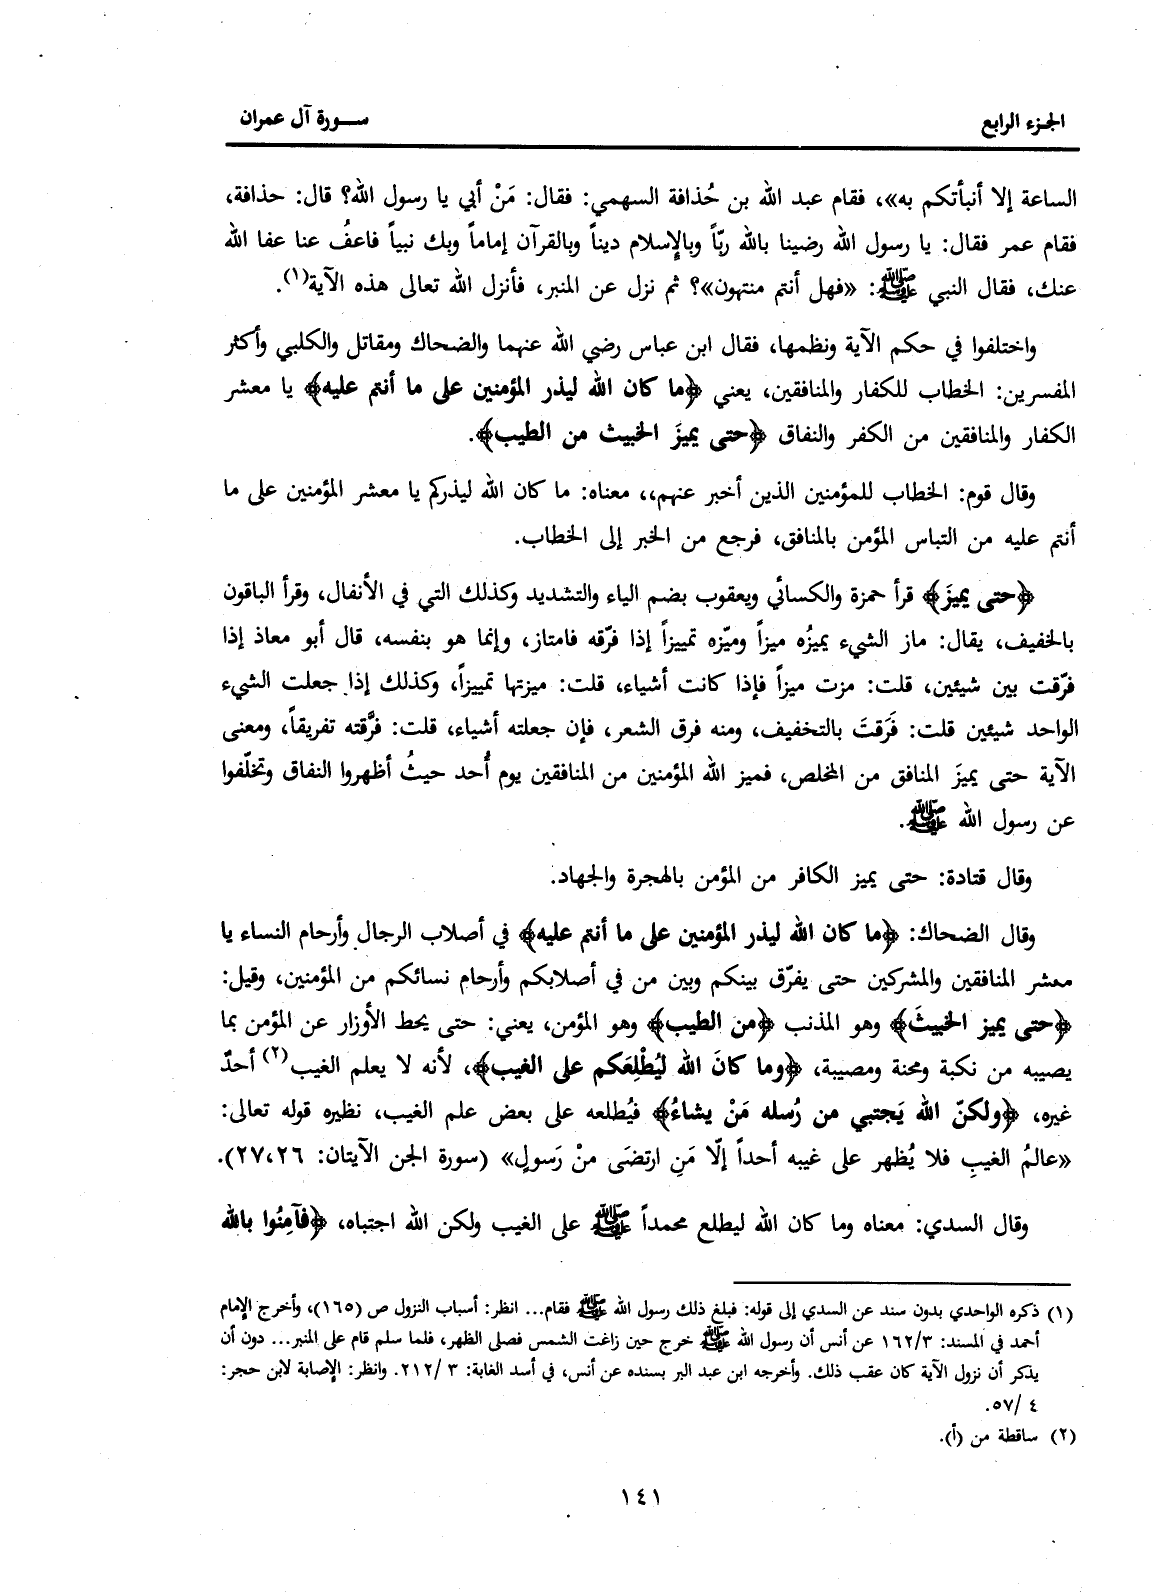 الجزء الرابع
سـورة آل عمران
الساعة إلا أنبأتكم به»، فقام عبد الله بن حُذافة السهمي: فقال: مَنْ أبي يا رسول الله؟ قال: حذافة،
فقام عمر فقال: يا رسول الله رضينا بالله ربّاً وبالإسلام ديناً وبالقرآن إماماً وبك نبياً فاعفُ عنا عفا الله
عنك، فقال النبي ﷺ: «فهل أنتم منتهون»؟ ثم نزل عن المنبر، فأنزل الله تعالى هذه الآية(١).
واختلفوا في حكم الآية ونظمها، فقال ابن عباس رضي الله عنهما والضحاك ومقاتل والكلبي وأكثر
المفسرين: الخطاب للكفار والمنافقين، يعني ﴿ما كان الله ليذر المؤمنين على ما أنتم عليه﴾ يا معشر
الكفار والمنافقين من الكفر والنفاق ﴿حتى يميزَ الخبيث من الطيب﴾.
وقال قوم: الخطاب للمؤمنين الذين أخبر عنهم،، معناه: ما كان الله ليذركم يا معشر المؤمنين على ما
أنتم عليه من التباس المؤمن بالمنافق، فرجع من الخبر إلى الخطاب.
﴿حتى يميزَ﴾ قرأ حمزة والكسائي ويعقوب بضم الياء والتشديد وكذلك التي في الأنفال، وقرأ الباقون
بالخفيف، يقال: ماز الشيء يميزُه ميزاً وميّزه تمييزاً إذا فرّقه فامتاز، وإنما هو بنفسه، قال أبو معاذ إذا
فرّقت بين شيئين، قلت: مزت ميزاً فإذا كانت أشياء، قلت: ميزتها تمييزاً، وكذلك إذا جعلت الشيء
الواحد شيئين قلت: فَرَقتَ بالتخفيف، ومنه فرق الشعر، فإن جعلته أشياء، قلت: فرَّقته تفريقاً، ومعنى
الآية حتى يميزَ المنافق من المخلص، فميز الله المؤمنين من المنافقين يوم أُحد حيثُ أظهروا النفاق وتخلّفوا
عن رسول الله ﷺ.
وقال قتادة: حتى يميز الكافر من المؤمن بالهجرة والجهاد.
وقال الضحاك: ﴿ما كان الله ليذر المؤمنين على ما أنتم عليه﴾ في أصلاب الرجال وأرحام النساء يا
معشر المنافقين والمشركين حتى يفرّق بينكم وبين من في أصلابكم وأرحام نسائكم من المؤمنين، وقيل:
﴿حتى يميز الخبيثَ﴾ وهو المذنب ﴿من الطيب﴾ وهو المؤمن، يعني: حتى يحط الأوزار عن المؤمن بما
يصيبه من نكبة ومحنة ومصيبة، ﴿وما كانَ الله ليُطْلِعَكم على الغيب﴾، لأنه لا يعلم الغيب(٢) أحدٌ
غيره، ﴿ولكنّ الله يَجتبي من رُسله مَنْ يشاءُ﴾ فيُطلعه على بعض علم الغيب، نظيره قوله تعالى:
«عالمُ الغيبِ فلا يُظهر على غيبه أحداً إلّا مَنِ ارتضَى منْ رَسولٍ» (سورة الجن الآيتان: ٢٧،٢٦).
وقال السدي: معناه وما كان الله ليطلع محمداً ﷺ على الغيب ولكن الله اجتباه، ﴿فآمِنُوا بالله
(١) ذكره الواحدي بدون سند عن السدي إلى قوله: فبلغ ذلك رسول الله ﷺ فقام... انظر: أسباب النزول ص (١٦٥)، وأخرج الإمام
أحمد في المسند: ١٦٢/٣ عن أنس أن رسول الله ﷺ خرج حين زاغت الشمس فصلى الظهر، فلما سلم قام على المنبر... دون أن
يذكر أن نزول الآية كان عقب ذلك. وأخرجه ابن عبد البر بسنده عن أنس، في أسد الغابة: ٣ /٢١٢. وانظر: الإصابة لابن حجر:
٤ /٥٧.
(٢) ساقطة من (أ).
١٤١